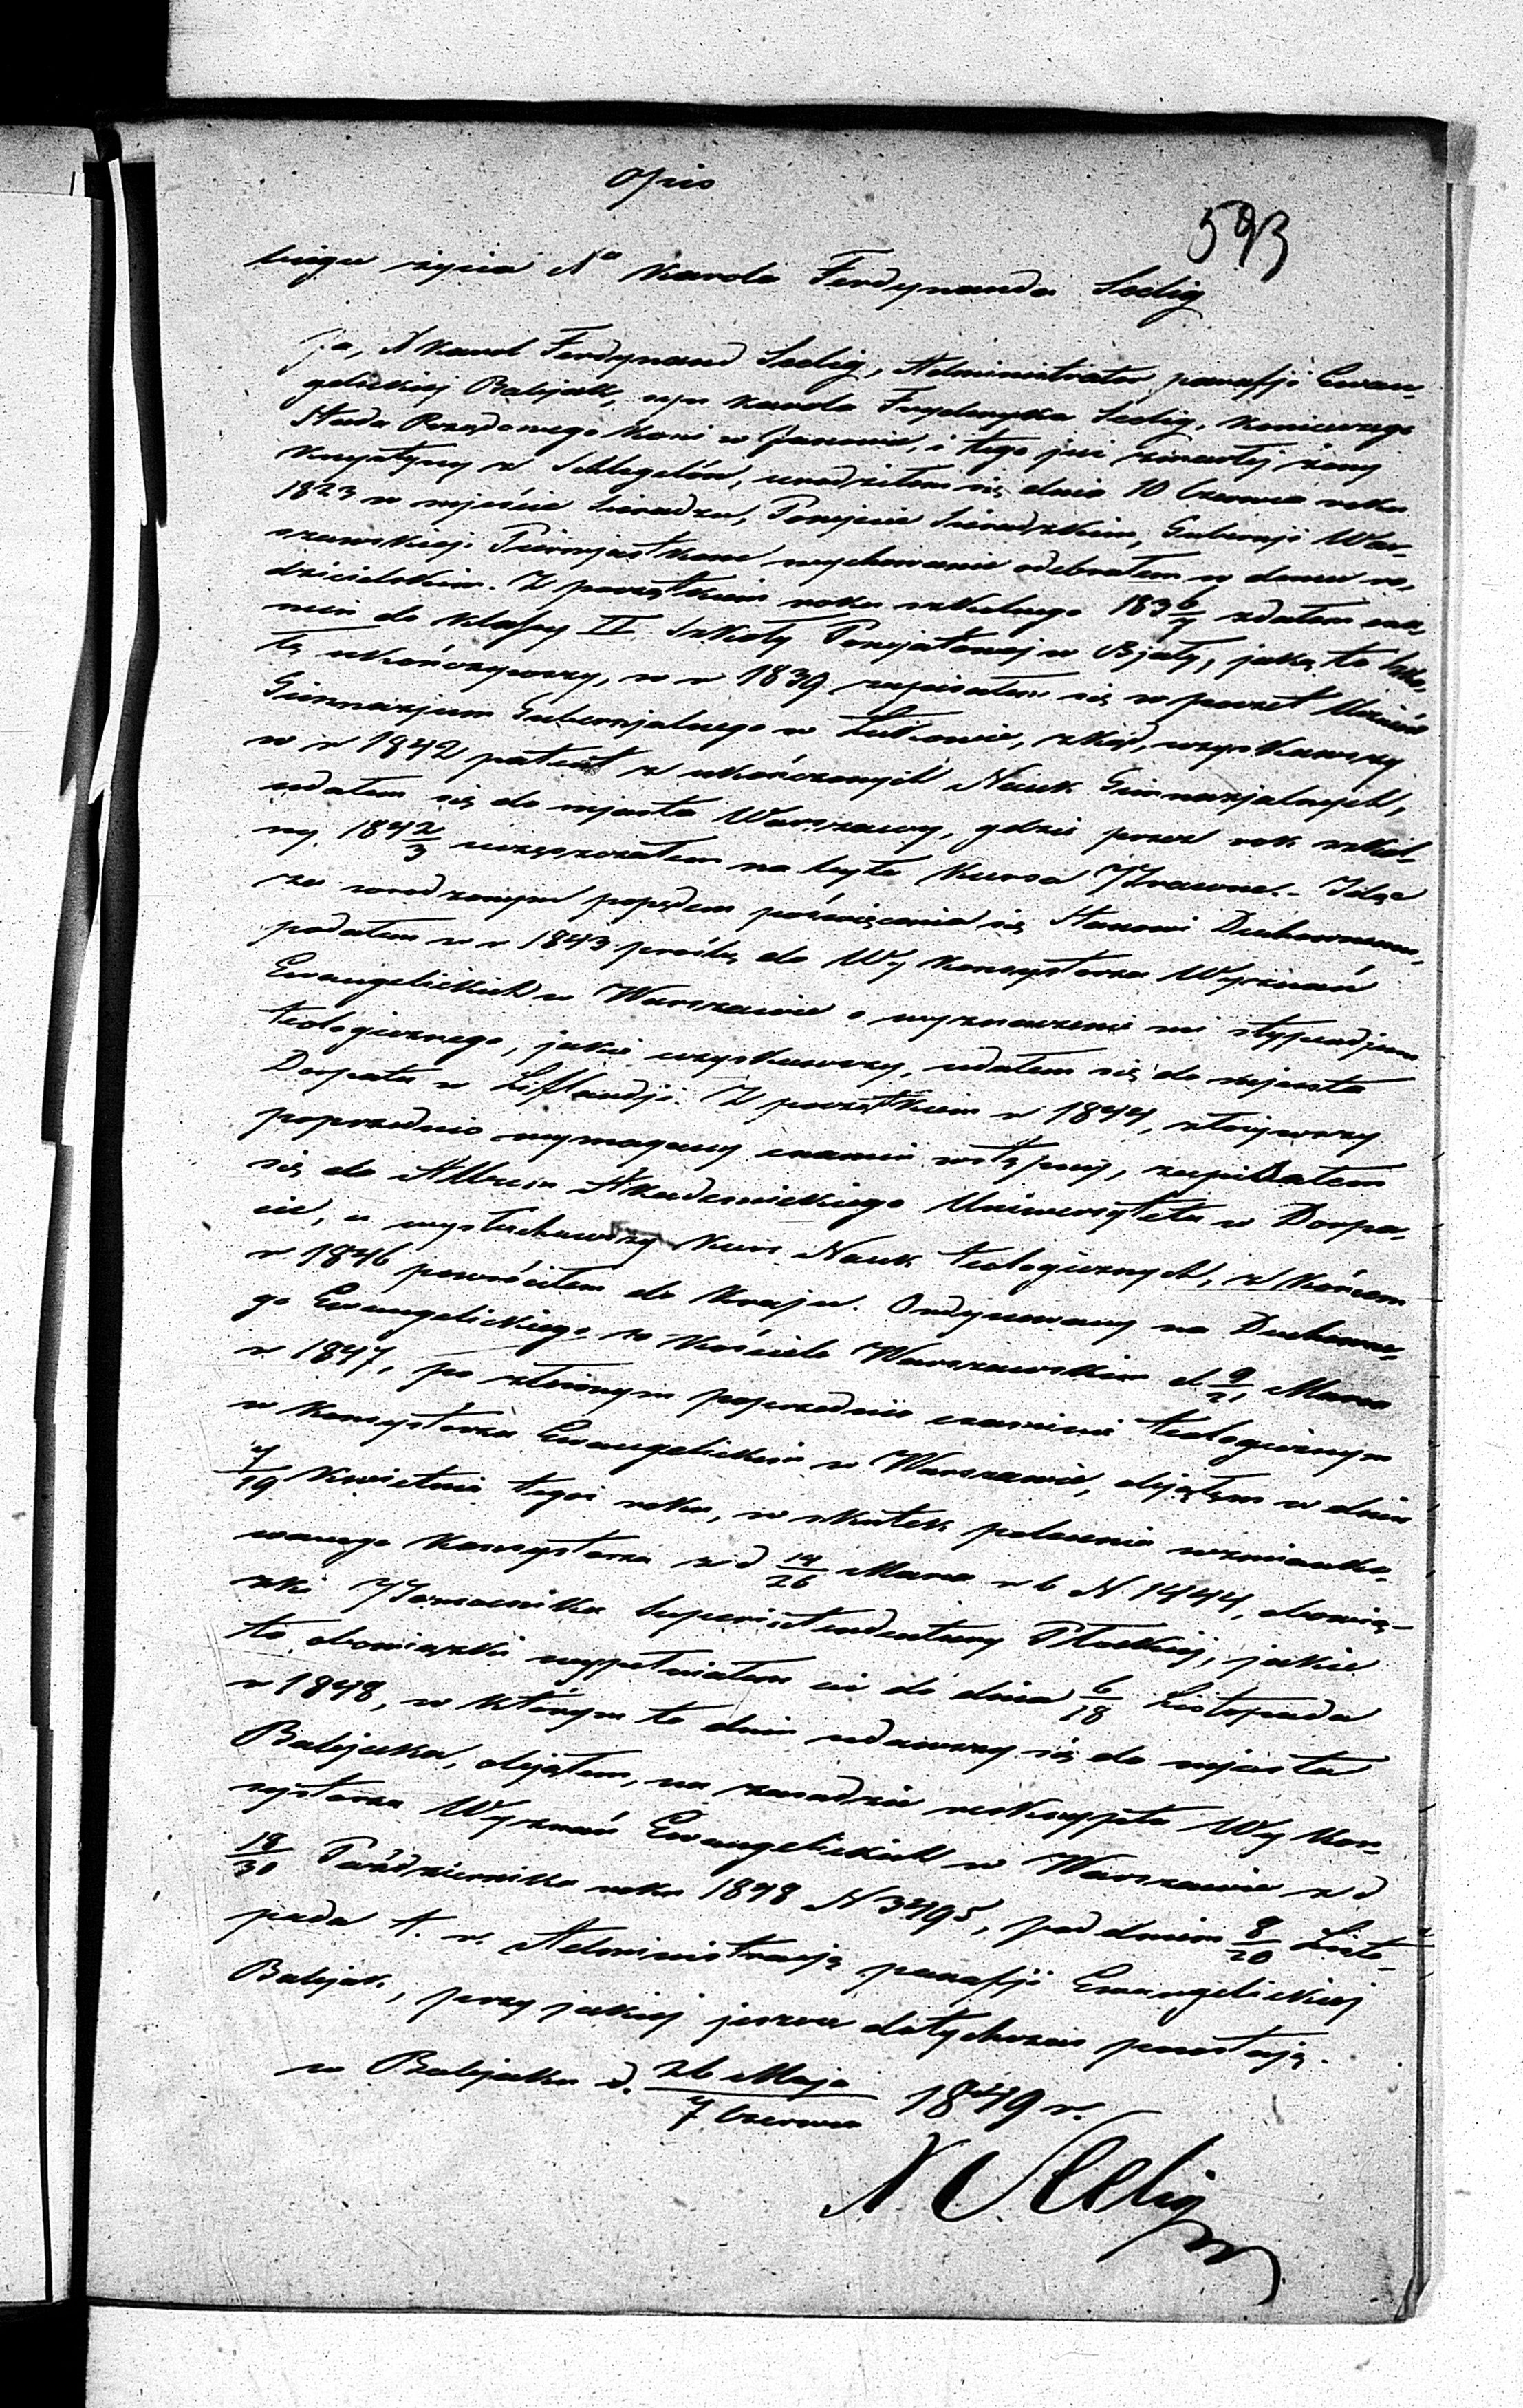 Opis
593
biegu życia Xa Karola Ferdynanda Sedig
Ja, X Karol Ferdynand Sedig, Administrator parafji Ewan-
gelickiej Babjak, syn Karola Fryderyka Sedig, Koniuszego
Stada Rządowego Koni w Janowie, i tegoż już zmarłej żony
Krystyny z Schlegelów, urodziłem się dnia 10 Czerwca roku
1823 w mjeście Sieradzu, Powjecie Sieradzkim, Gubernji War-
szawskiej. Pierwjastkowe wychowanie odebrałem w domu ro-
dzicielskim. Z początkiem roku szkolnego 183 6/7 zdałem exa-
min do klassy II Szkoły Powjatowej w Bjały, jaką to szko-
łę ukończywszy, w r 1839 zapisałem się w poczet Uczniów
Gimnazjum Gubernjalnego w Łukowie, zkąd, uzyskawszy
w r 1842 patent z ukończonych Nauk Gimnazjalnych,
udałem się do mjasta Warszawy, gdzie przez rok szkol-
ny 184 2/3 uczęszczałem na były Kursa Prawne. - Idąc
za wrodzonym popędem poświęcenia się Stanowi Duchownemu,
podałem w r 1843 prośbę do Wy Konsystorza Wyznań
Ewangelickich w Warszawie o wyznaczenie mi stypendjum
teologicznego, jakie uzyskawszy, udałem się do mjasta
Dorpatu w Liflandji. Z początkiem r 1844, złożywszy
poprzednio wymagany examin wstępny, zapisałem
się do Album Akademickiego Uniwersytetu w Dorpa-
cie, a wysłuchawszy Kurs Nauk teologicznych, z końcem
r 1846 powróciłem do Kraju. Ordynowany na Duchowne-
go Ewangelickiego w Kościele Warszawskim d 9/21 Marca
r 1847, po złożonym poprzednio examinie teologicznym
w Konsystorzu Ewangelickim w Warszawie, objąłem w dniu
7/19 Kwietnia tegoż roku, w skutek polecenia wzmianko-
wanego Konsystorza z d 14/26 Marca r b N 1444, obowią-
zki Pomocnika Superintendentury Płockiej, jakie
to obowiązki wypełniałem aż do dnia 6/18 Listopada
r 1848, w którym to dniu udawszy się do mjasta
Babjaka, objąłem, na zasadzie reskryptu Wy Kon-
systorza Wyznań Ewangelickich w Warszawie z d
18/30 Października roku 1848 N 3495, pod dniem 8/20 Listo-
pada t. r. Administracją parafji Ewangelickiej
Babjak, przy jakiej jeszcze dotychczas pozostaję.
w Babjaku d. 26 Maja / 7 Czerwca 1849 r.
X Sedig